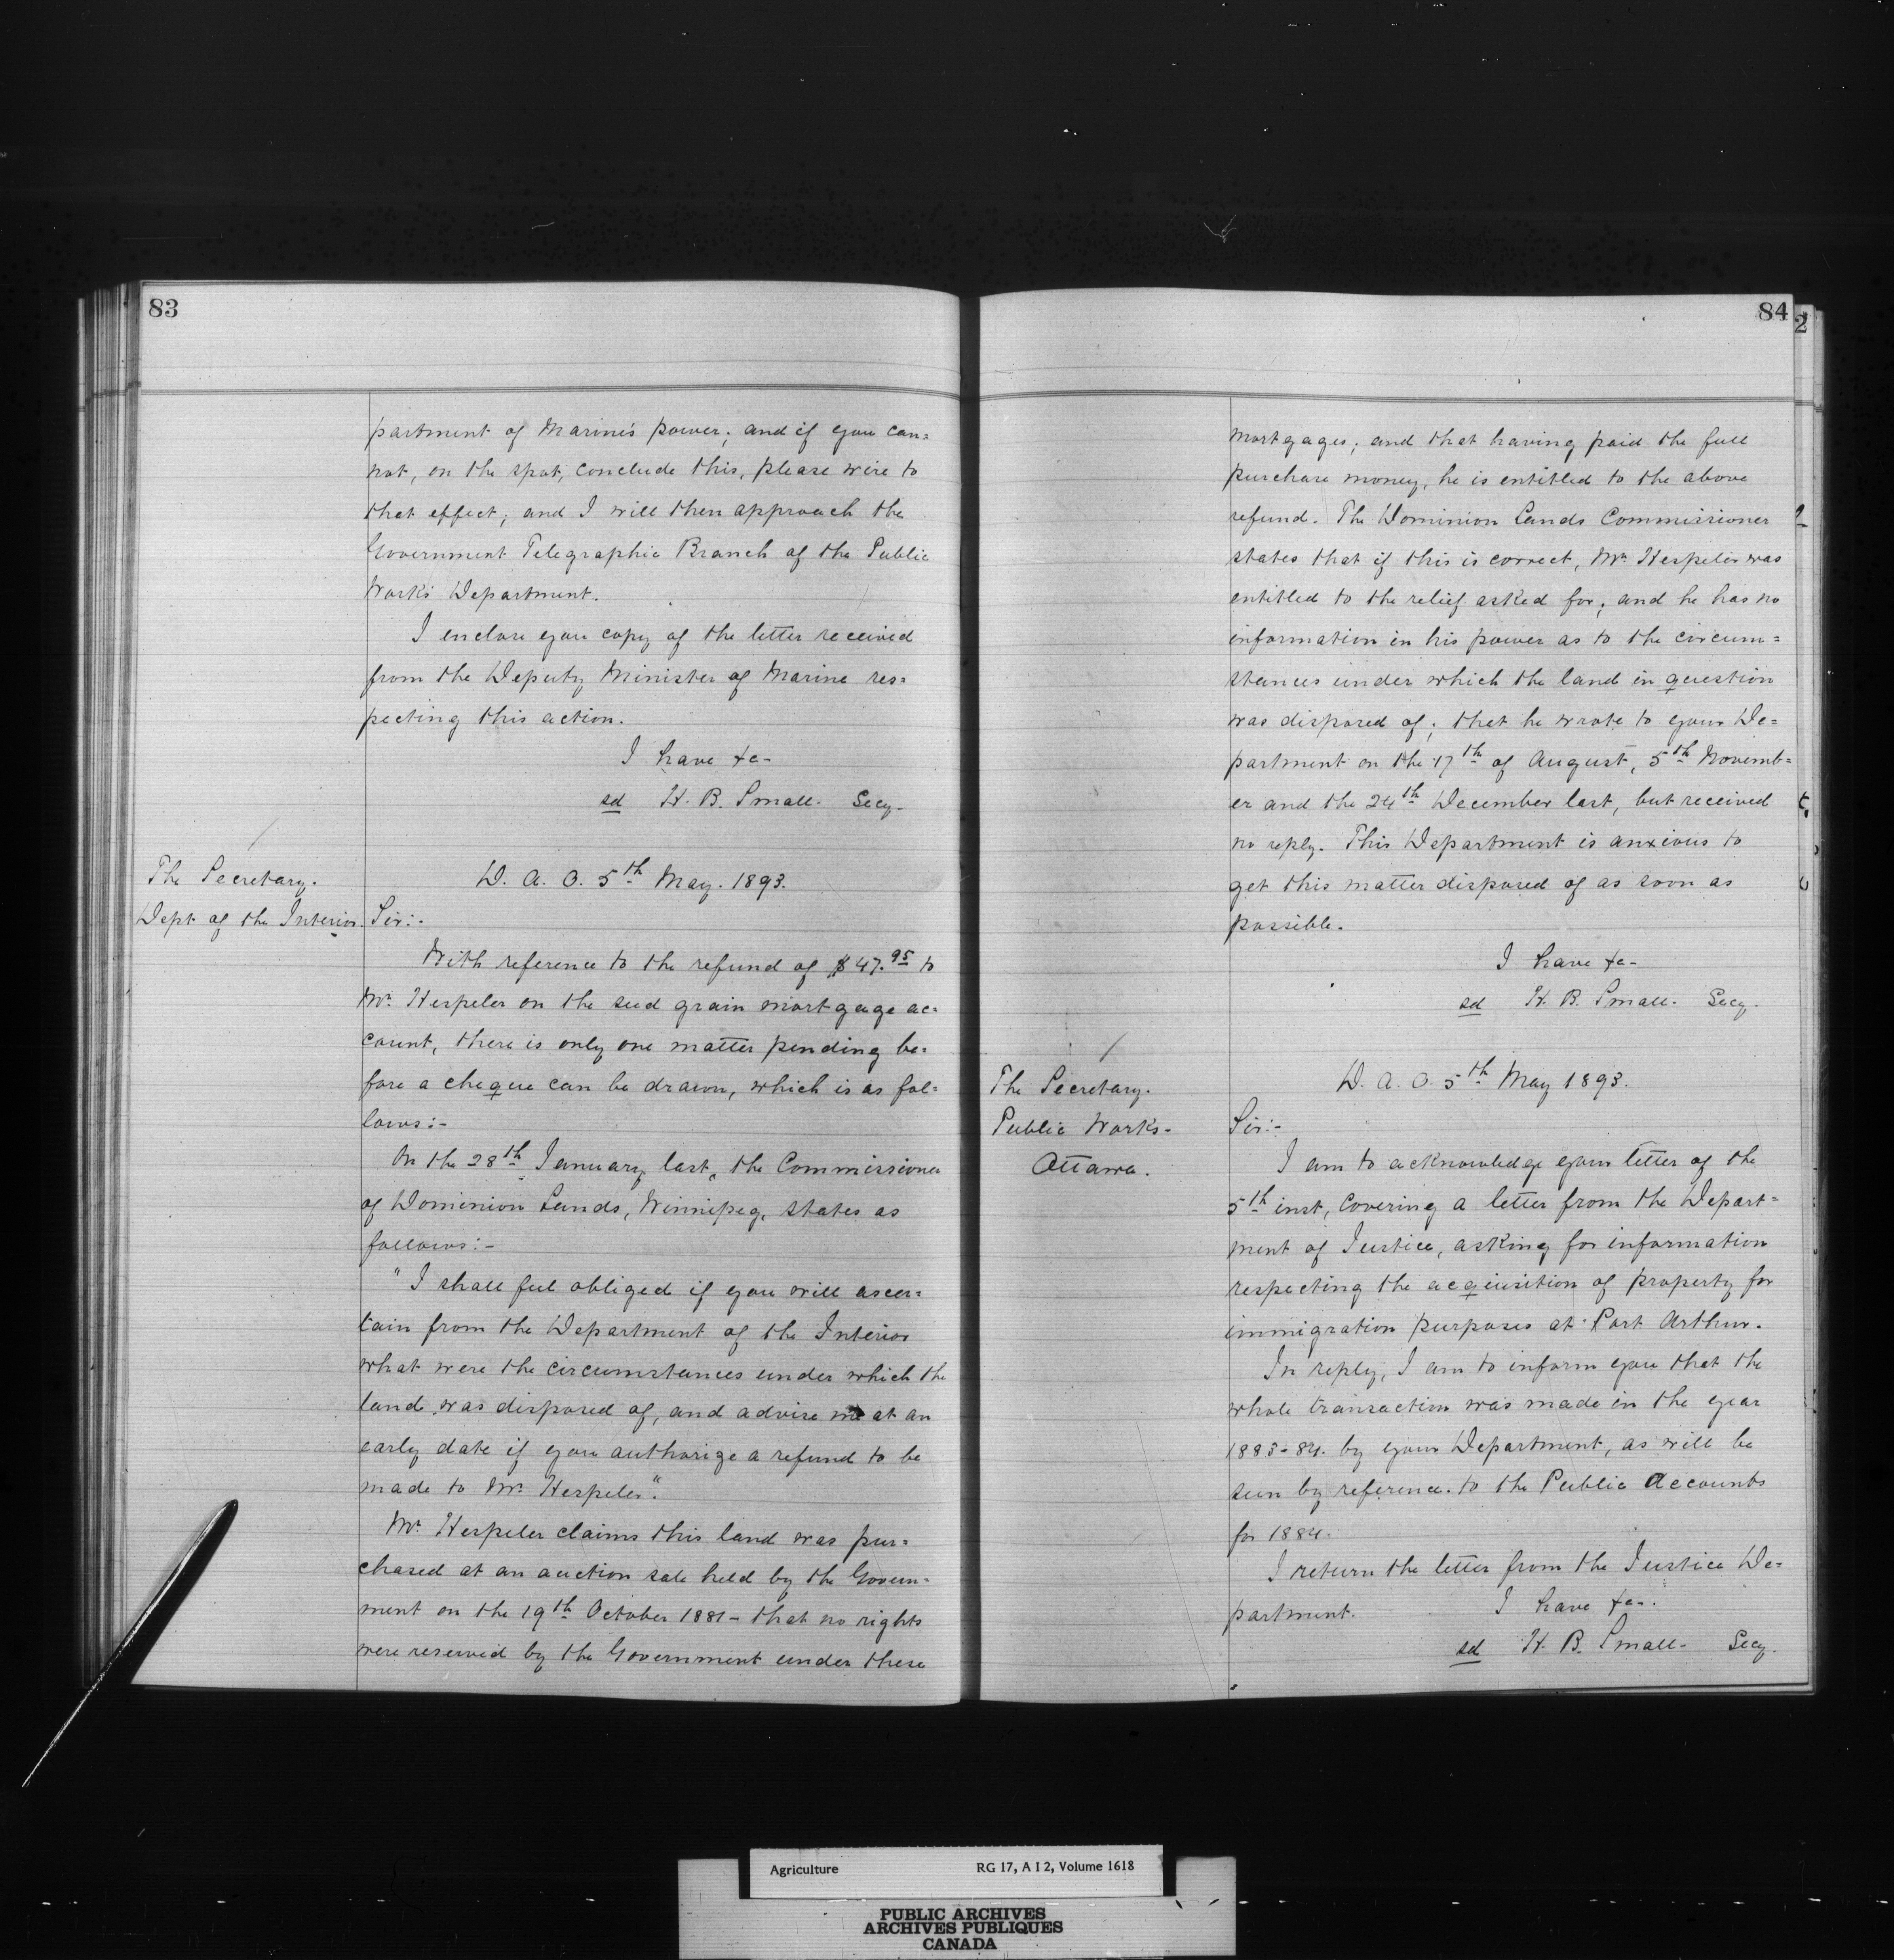 83
partment of Marine's power; and if you can=
not, on the spot, conclude this, please wire to
that effect; and I will then approach the
Government Telegraphic Branch of the Public
Works Department.
I enclose you copy of the letter received
from the Deputy Minister of Marine res=
pecting this action.
I have &c-
sd H. B. Small. Secy-
The Secretary.
Dept of the Interior.
D. A. O. 5th May. 1893.
Sir:-
With reference to the refund of $47.95 to
Mr. Hespeler on the seed grain mortgage ac=
count, there is only one matter pending be=
fore a cheque can be drawn, which is as fol=
lows:-
On the 28th January last, the Commissioner
of Dominion Lands, Winnipeg, states as
follows:-
"I shall feel obliged if you will ascer=
tain from the Department of the Interior
what were the circumstances under which the
land was disposed of, and advise me at an
early date if you authorize a refund to be
made to Mr. Hespeler".
Mr. Hespeler claims this land was pur=
chased at an auction sale held by the Govern=
ment on the 19th October 1881- that no rights
were reserved by the Government under these
84
2
mortgages; and that having paid the full
purchase money, he is entitled to the above
refund. The Dominion Lands Commissioner
states that if this is correct, Mr. Hespeler was
entitled to the relief asked for; and he has no
information in his power as to the circum=
stances under which the land in question
was disposed of; that he wrote to your De=
partment on the 17th of August, 5th Novemb=
er and the 24th December last, but received
no reply. This Department is anxious to
get this matter disposed of as soon as
possible.
I have &c-
sd H. B. Small. Secy.
The Secretary.
Public Works-
Ottawa.
D. A. O. 5th May 1893.
Sir:-
I am to acknowledge your letter of the
5th inst, covering a letter from the Depart=
ment of Justice, asking for information
respecting the acquisition of property for
immigration purposes at Port Arthur.
In reply, I am to inform you that the
whole transaction was made in the year
1883-84. by your Department, as will be
seen by reference to the Public Accounts
for 1884.
I return the letter from the Justice De=
partment. I have &c-.
sd H. B. Small- Secy.
Agriculture RG 17, A I 2, Volume 1618
PUBLIC ARCHIVES
ARCHIVES PUBLIQUES
CANADA